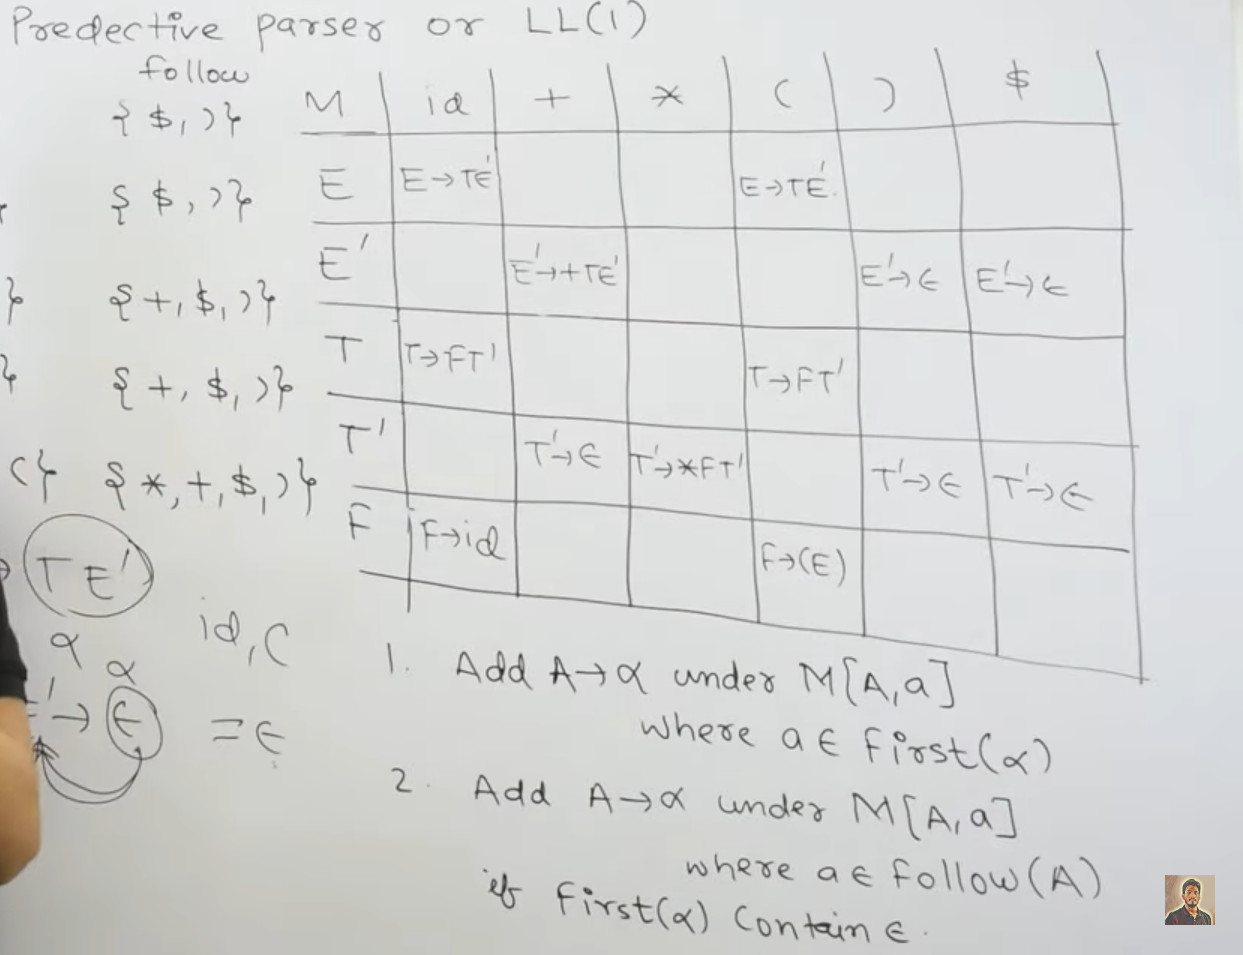 Predective parser or LL(1)
follow
{ $, ) }
M id + * ( ) $
{ $, ) }
E E→TE' E→TE'.
E' E'→+TE' E'→ϵ E'→ϵ
} { +, $, ) }
T T→FT' T→FT'
} { +, $, ) }
T' T'→ϵ T'→*FT' T'→ϵ T'→ϵ
(} { *, +, $, ) }
F F→id F→(E)
TE'
α id, (
α
'→ ϵ = ϵ
1. Add A→α under M[A,a]
where a ϵ First(α)
2. Add A→α under M[A,a]
where a ϵ Follow(A)
if First(α) Contain ϵ.